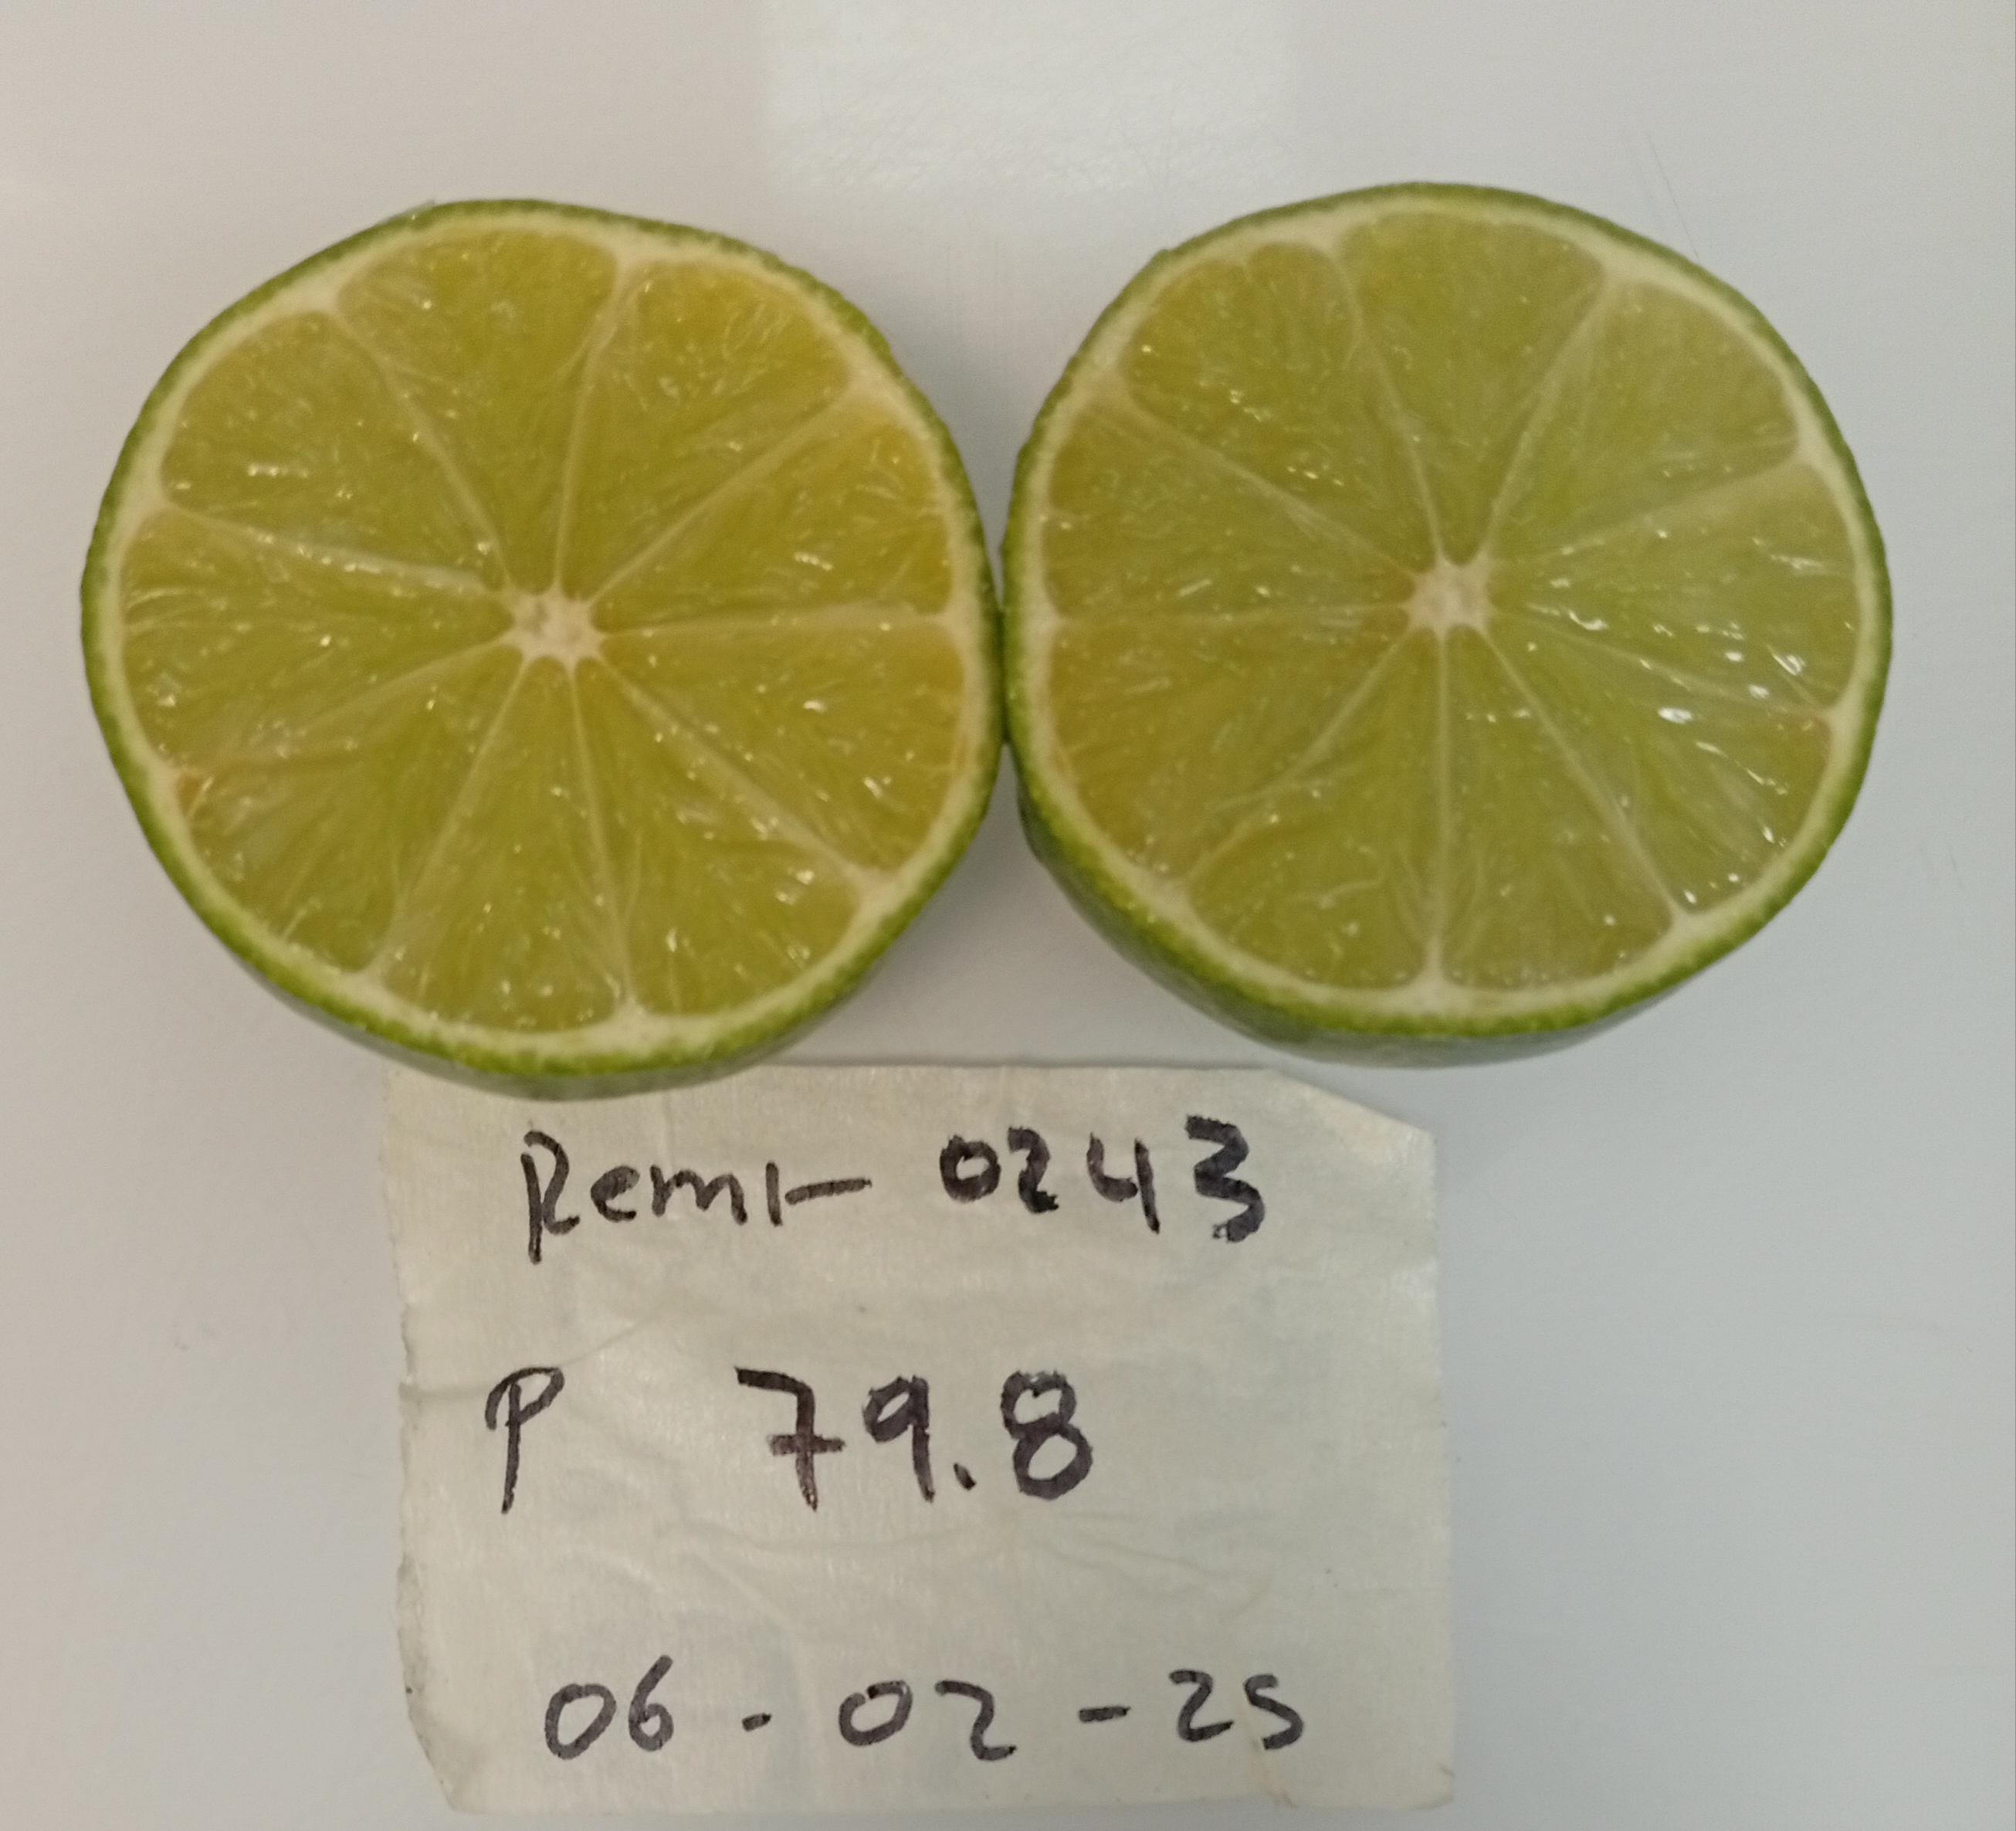 Remi- 0243
P 79.8
06-02-25